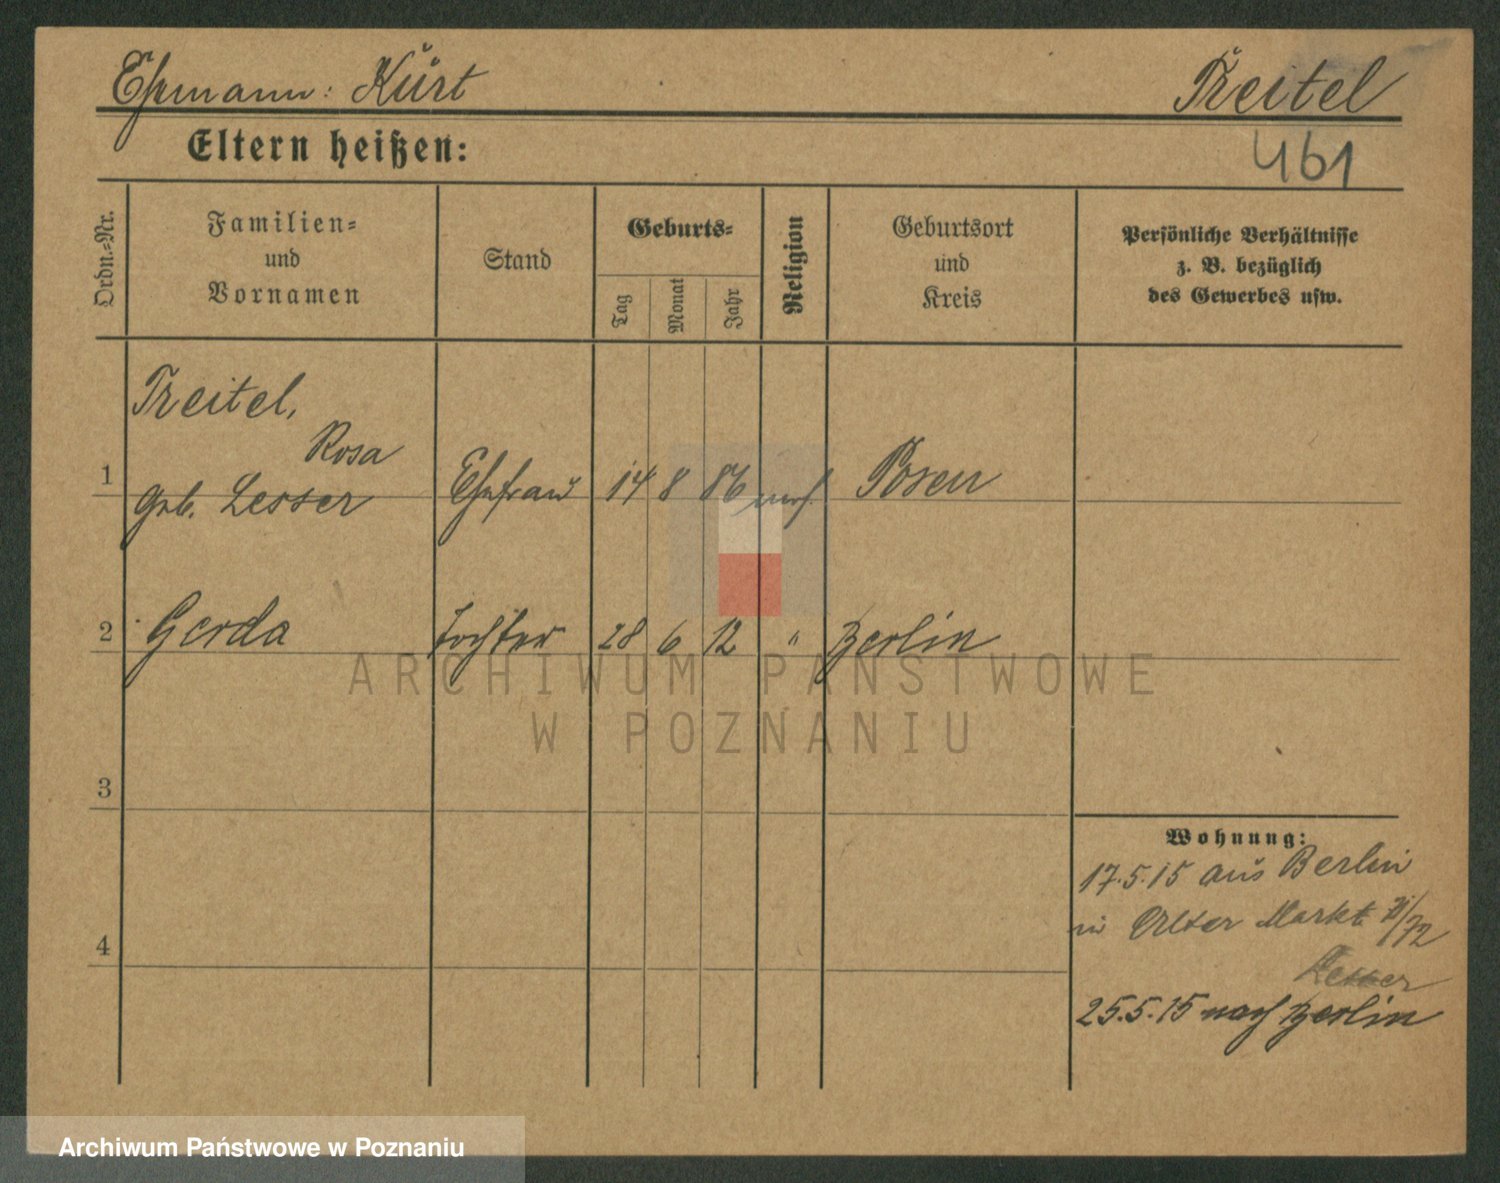 Ehemann: Kurt Treitel
461
Eltern heißen:
Ordn.-Nr.
Familien-
und
Vornamen
Stand
Geburts-
Tag
Monat
Jahr
Religion
Geburtsort
und
Kreis
Persönliche Verhältnisse
z. B. bezüglich
des Gewerbes usw.
Treitel,
Rosa
1 geb. Lesser Ehefrau 14 8 86 mos. Posen
2 Gerda Tochter 28 6 12 " Berlin
ARCHIWUM PAŃSTWOWE
W POZNANIU
3
Wohnung:
17.5.15 aus Berlin
in Alter Markt /72
4
Lesser
25.5.15 nach Berlin
Archiwum Państwowe w Poznaniu